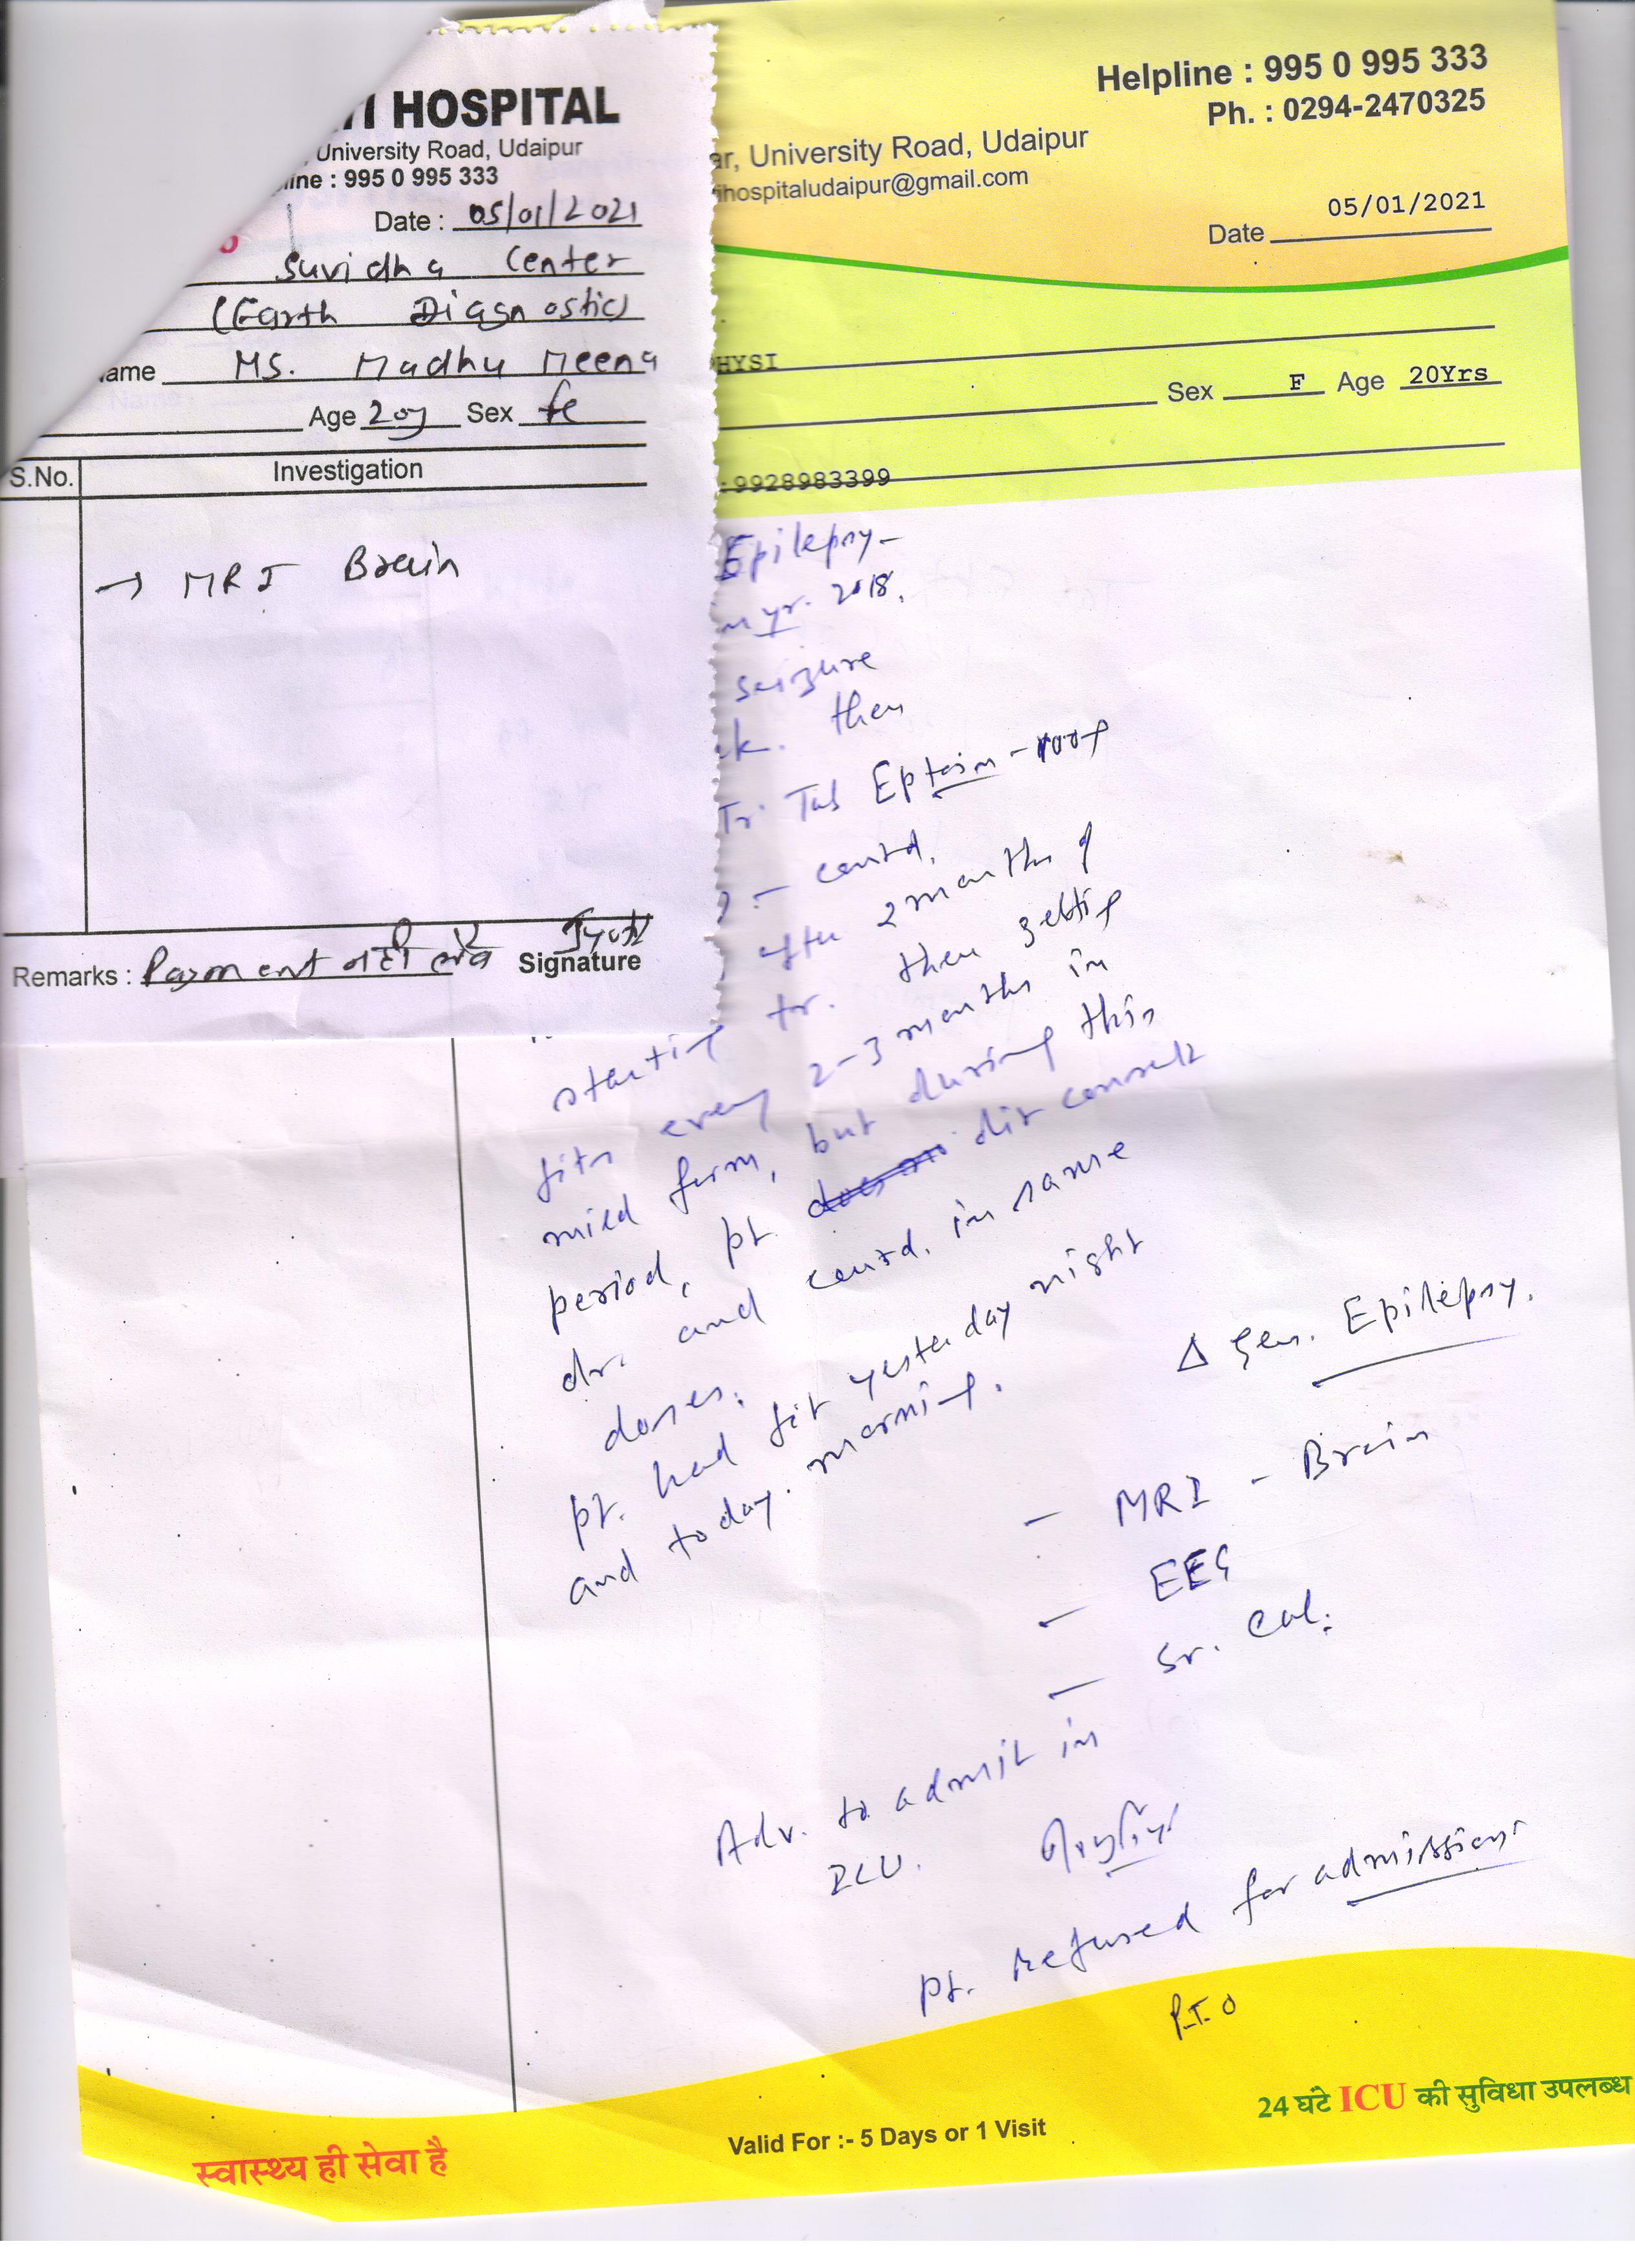 HOSPITAL
University Road, Udaipur
line : 995 0 995 333
Date : 05/01/2021
Suvidha Center
(Earth Diagnostic)
ame Ms. Madhu Meena
Age 20y Sex fe
S.No. Investigation
→ MRI Brain
Remarks : Payment नही लेवे Signature
Helpline : 995 0 995 333
Ph. : 0294-2470325
ar, University Road, Udaipur
ihospitaludaipur@gmail.com
Date 05/01/2021
HYSI
Sex F Age 20Yrs
:9928983399
Epilepsy-
in yr. 2018.
seizure
ek. then
Tr. Tab Eptoin -
- contd.
after 2 months of
starting tr. then getting
fits every 2-3 months in
mild form, but during this
period, pt. consult
dr. and contd. in same
doses.
pt. had fit yesterday night
and today morning.
Δ Gen. Epilepsy.
- MRI - Brain
- EEG
- Sr. Cal.
Adv. to admit in
ICU.
pt. refused for admission.
P.T.O
24 घंटे ICU की सुविधा उपलब्ध
Valid For :- 5 Days or 1 Visit
स्वास्थ्य ही सेवा है